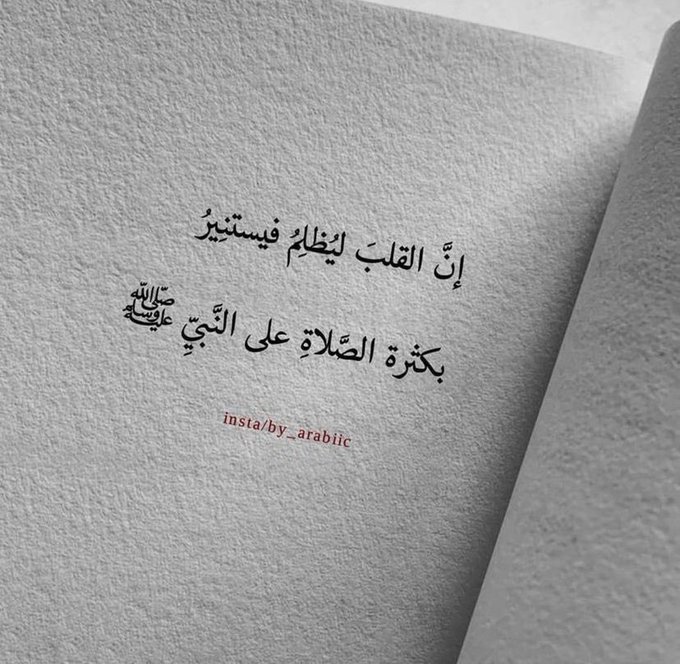 إنَّ القلبَ ليُظلِمُ فيستنِيرُ
بكثرة الصَّلاةِ على النَّبيِّ ﷺ
insta/by_arabiic